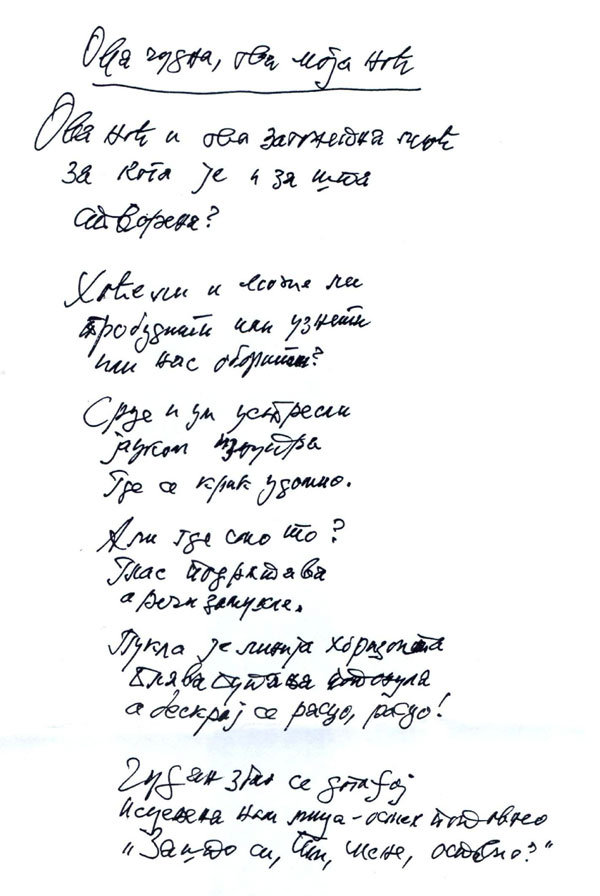 Ова чудна, ова моја ноћ
Ова ноћ и ова затожедна моћ
За кога је и за шта
створена?
Хоће ли и може ли
пробудити или узнети
или нас оборити?
Срце и ум устресли
јауком изнутра
Где се крик удомио.
Али где смо то?
Глас подрхтава
а речи замукле.
Пукла је линија хоризонта
плава потонула
а бескрај се расуо, расуо!
Чудан знак се догађај
нам лица - осмех
"Зашто си, ти, мене, оставио?"